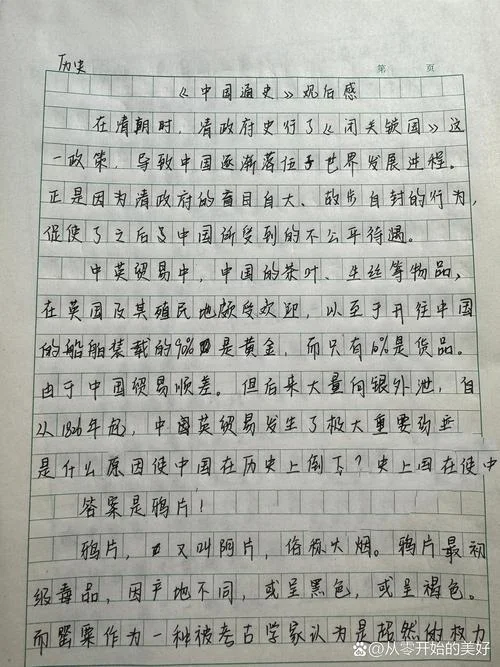 历史
第 页
《中国通史》观后感
在清朝时，清政府史行了《闭关锁国》这
一政策，导致中国逐渐落伍于世界发展进程。
正是因为清政府的盲目自大、故步自封的行为，
促使了之后中国所受到的不公平待遇。
中英贸易中，中国的茶叶、生丝等物品，
在英国及其殖民地颇受欢迎，以至于开往中国
的船舶装载的90%是黄金，而只有10%是货品。
由于中国贸易顺差。但后来大量白银外泄，自
从1826年起，中英贸易发生了极大重要
是什么原因使中国在历史上倒下？史上国在使中
答案是鸦片！
鸦片，又叫阿片，俗称大烟。鸦片最初
级毒品，因产地不同，或呈黑色，或呈褐色。
而罂粟作为一种被考古学家认为是超然的权力
@从零开始的美好